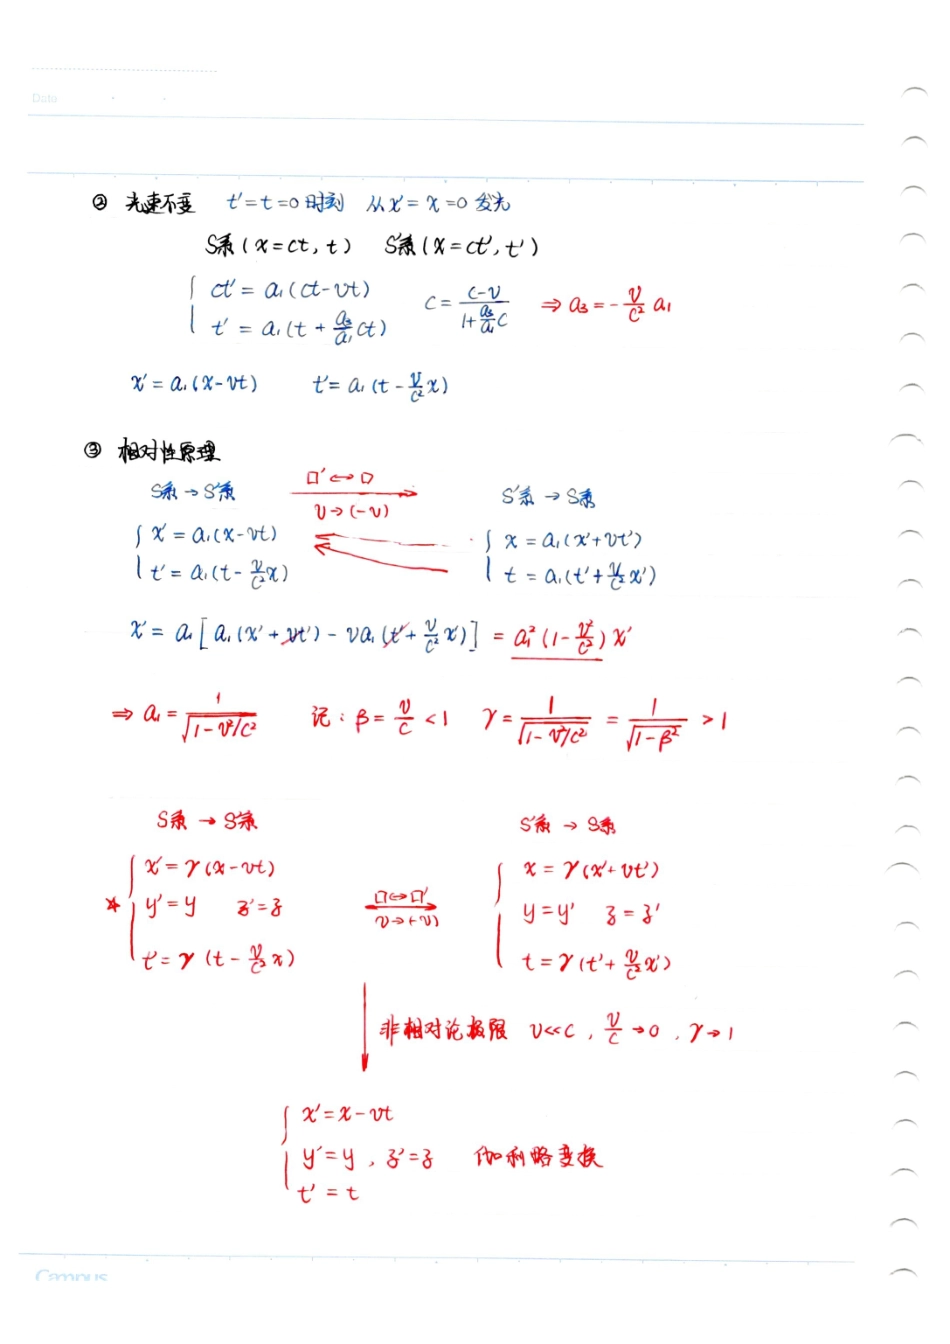 Date
② 光速不变 t'=t=0时刻 从x'=x=0发光
S系(x=ct, t) S'系(x=ct', t')
{ ct' = a₁(ct-vt)
t' = a₁(t + a₃/a₁ ct) c = (c-v)/(1+(a₃/a₁)c) ⇒ a₃ = -v/c² a₁
x' = a₁(x-vt) t' = a₁(t - v/c² x)
③ 相对性原理
S系 → S'系 □'↔□ v→(-v) S'系 → S系
{ x' = a₁(x-vt) { x = a₁(x'+vt')
t' = a₁(t - v/c² x) t = a₁(t' + v/c² x')
x' = a₁[a₁(x'+vt') - va₁(t' + v/c² x')] = a₁²(1 - v²/c²)x'
⇒ a₁ = 1/√(1-v²/c²) 记: β = v/c < 1 γ = 1/√(1-v²/c²) = 1/√(1-β²) > 1
S系 → S'系 S'系 → S系
{ x' = γ(x-vt) { x = γ(x'+vt')
☆ y'=y z'=z □↔□' v→(-v) y=y' z=z'
t' = γ(t - v/c² x) t = γ(t' + v/c² x')
非相对论极限 v<<c, v/c→0, γ→1
{ x' = x-vt
y'=y, z'=z 伽利略变换
t' = t
Campus